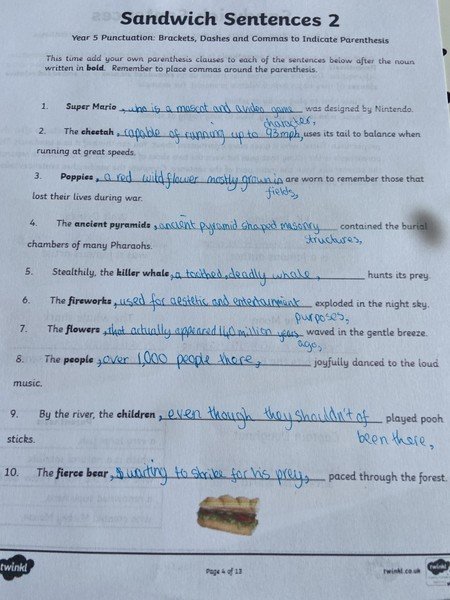 Sandwich Sentences 2
Year 5 Punctuation: Brackets, Dashes and Commas to Indicate Parenthesis
This time add your own parenthesis clauses to each of the sentences below after the noun
written in bold. Remember to place commas around the parenthesis.
1. Super Mario , who is a mascot and a video game was designed by Nintendo.
character,
2. The cheetah , capable of running up to 93mph, uses its tail to balance when
running at great speeds.
3. Poppies , a red wildflower mostly grown in are worn to remember those that
fields,
lost their lives during war.
4. The ancient pyramids , ancient pyramid shaped masonry contained the burial
structures,
chambers of many Pharaohs.
5. Stealthily, the killer whale , a toothed, deadly whale, hunts its prey.
6. The fireworks , used for aestetic and entertainment exploded in the night sky.
purposes,
7. The flowers , that actually appeared 140 million years waved in the gentle breeze.
ago,
8. The people , over 1,000 people there, joyfully danced to the loud
music.
9. By the river, the children , even though they shouldn't of played pooh
been there,
sticks.
10. The fierce bear , waiting to strike for his prey, paced through the forest.
twinkl
Page 4 of 13
twinkl.co.uk